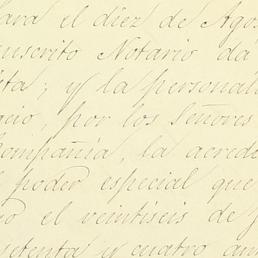 para el diez de Agos
nuscrito Notario da
sta; y la personali
ocio, por los Señores
Compañía, la acred
l poder especial que
o el veintiseis de J
setenta y cuatro an